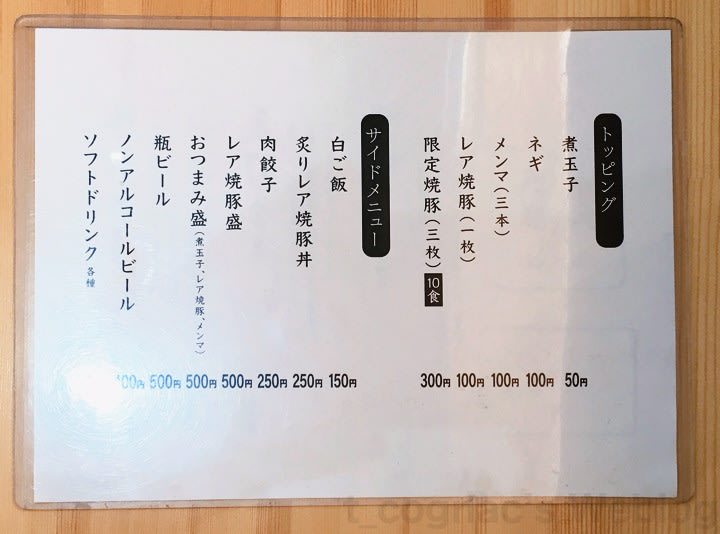 トッピング
煮玉子 50円
ネギ 100円
メンマ（三本） 100円
レア焼豚（一枚） 100円
限定焼豚（三枚）10食 300円
サイドメニュー
白ご飯 150円
炙りレア焼豚丼 250円
肉餃子 250円
レア焼豚盛 500円
おつまみ盛（煮玉子、レア焼豚、メンマ） 500円
瓶ビール 500円
ノンアルコールビール 00円
ソフトドリンク 各種
t_cognac's